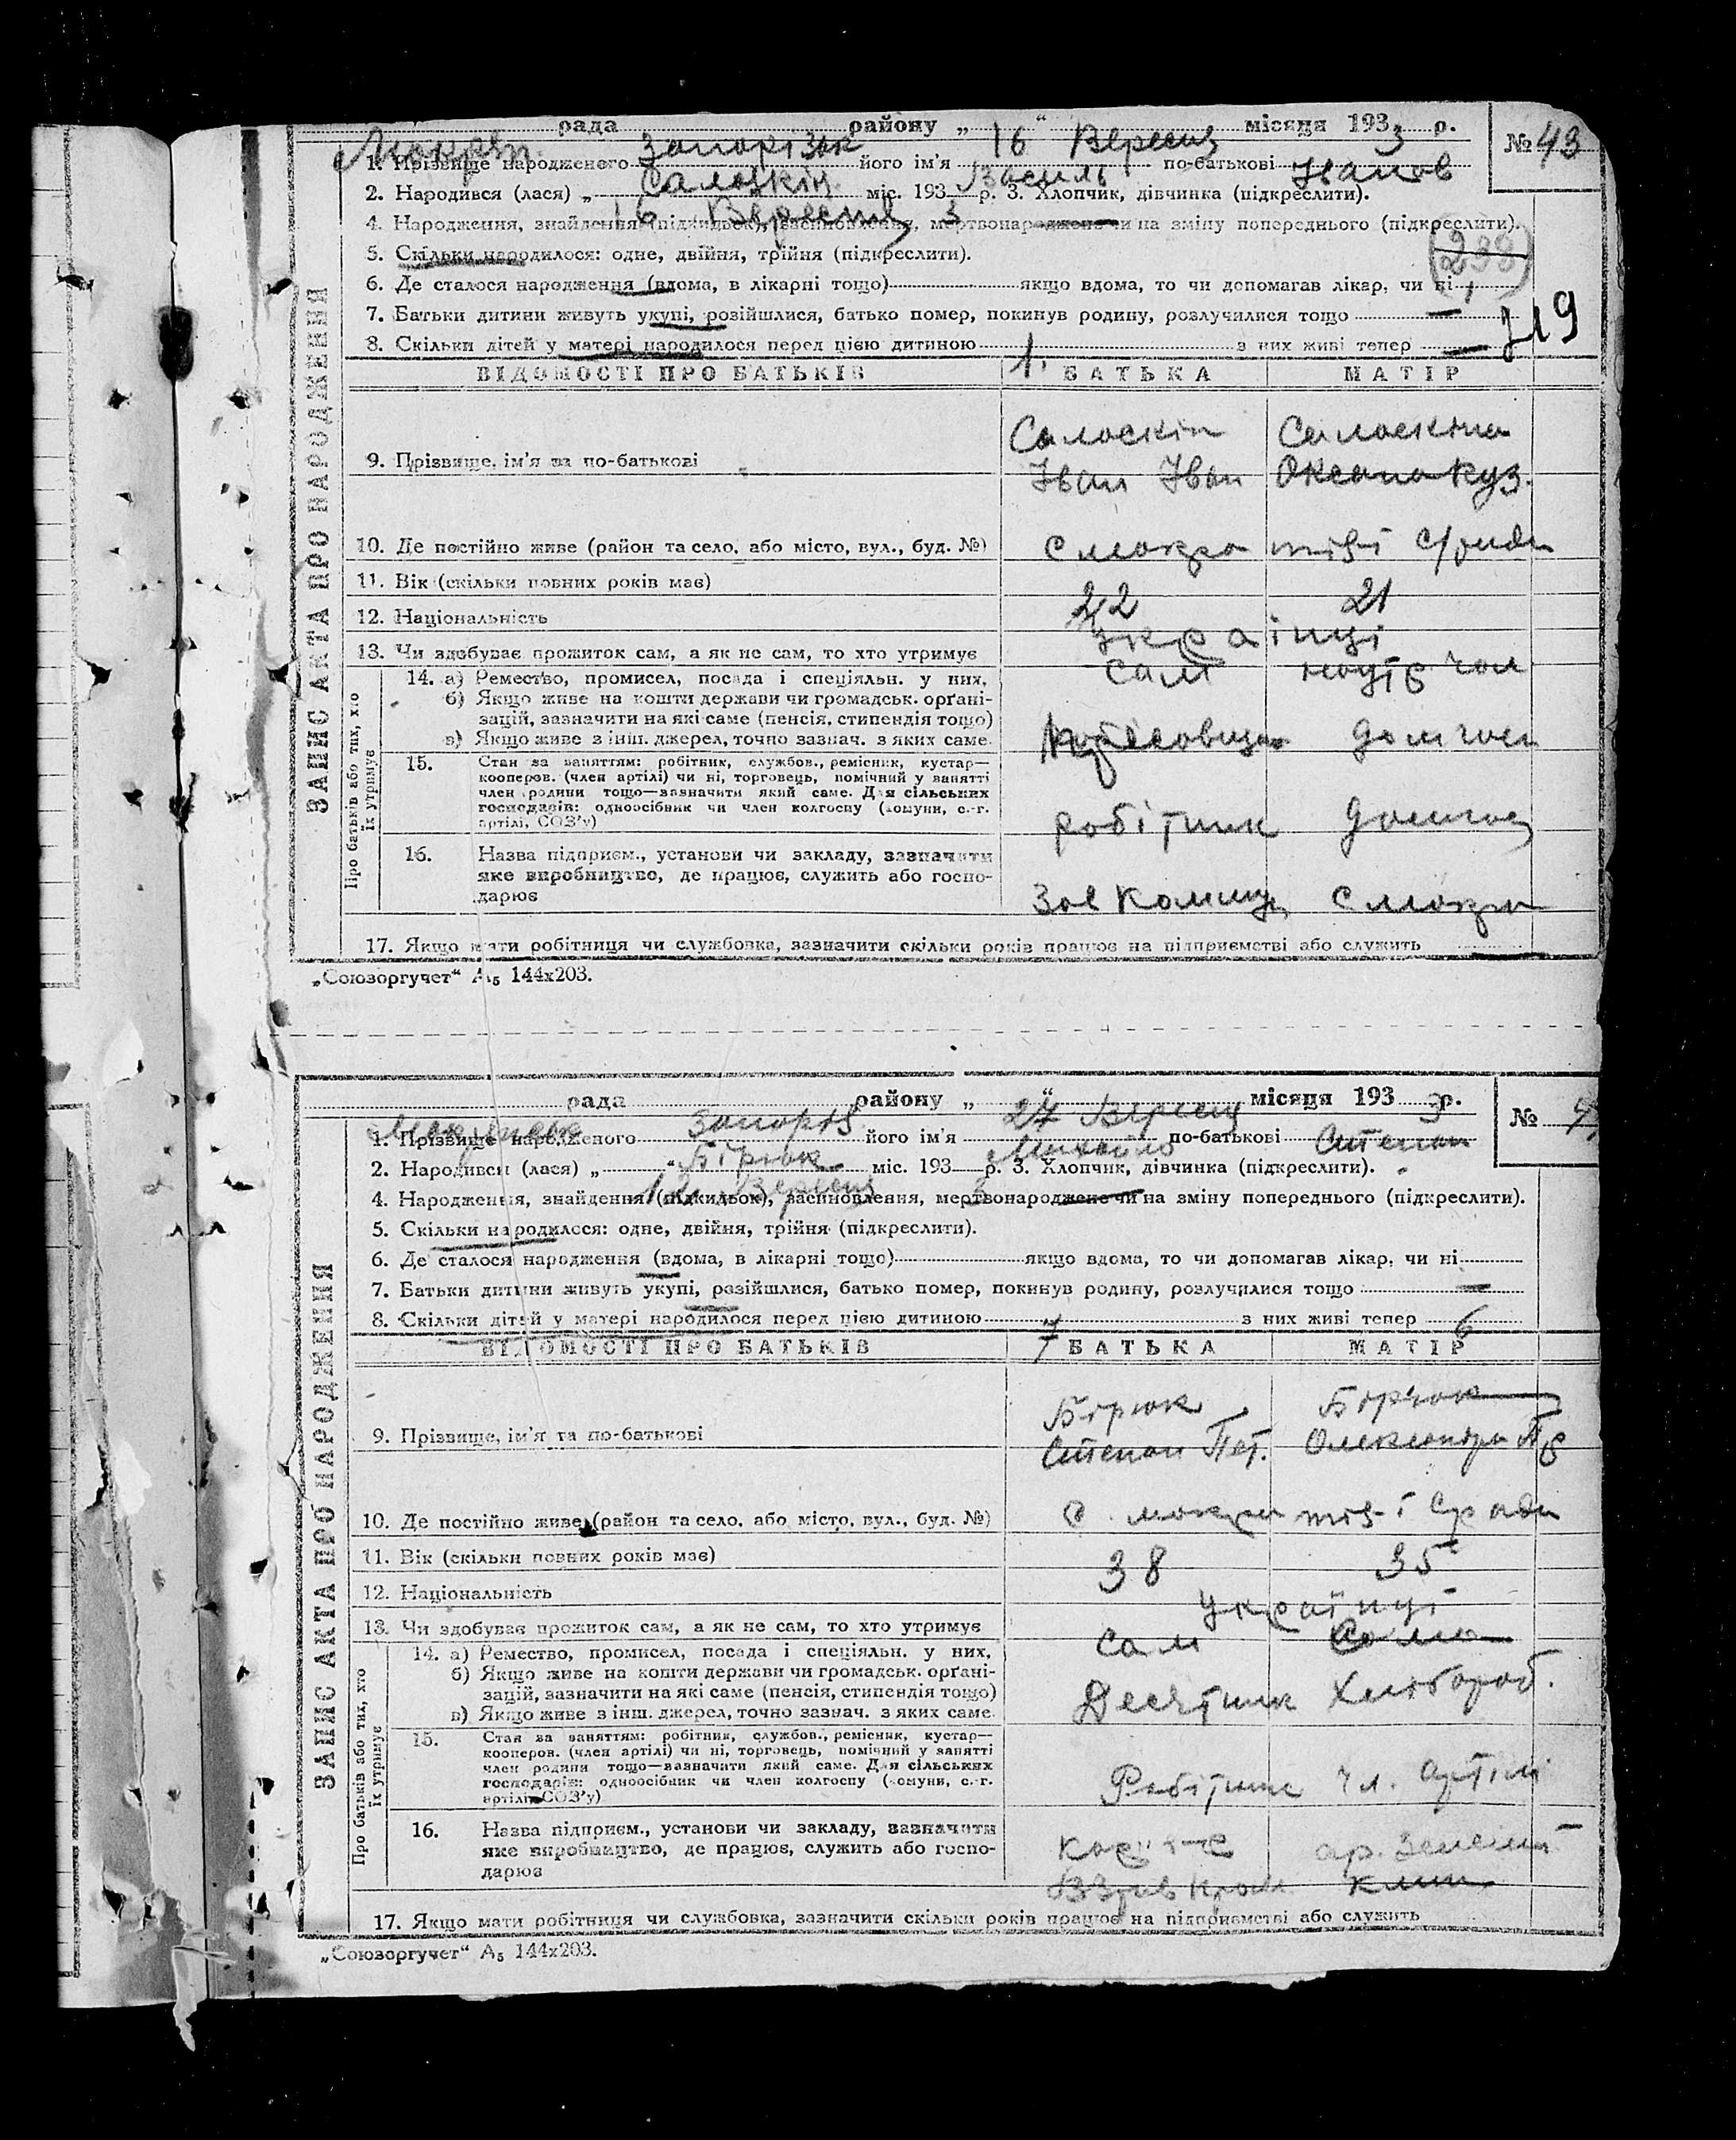 рада Запорізьк району „ 16 “ Вересня місяця 1933 р. № 43
1. Прізвище народженого Салоскін його ім'я Василь по-батькові Іванов
2. Народився (лася) „ 16 Вересня міс. 193 3 р. 3. Хлопчик, дівчинка (підкреслити).
4. Народження, знайдення (підкидьок), засиновлення, мертвонароджене чи на зміну попереднього (підкреслити).
(238)
5. Скільки народилося: одне, двійня, трійня (підкреслити).
6. Де сталося народження (вдома, в лікарні тощо) якщо вдома, то чи допомагав лікар, чи ні
7. Батьки дитини живуть укупі, розійшлися, батько помер, покинув родину, розлучилися тощо —
8. Скільки дітей у матері народилося перед цією дитиною 1. з них живі тепер —
ЗАПИС АКТА ПРО НАРОДЖЕННЯ
ВІДОМОСТІ ПРО БАТЬКІВ БАТЬКА МАТІР
Салоскін Салоскіна
9. Прізвище, ім'я та по-батькові Іван Іван Оксана Куз.
10. Де постійно живе (район та село, або місто, вул., буд. №)
11. Вік (скільки повних років має) 22 21
12. Національність Українці
13. Чи здобуває прожиток сам, а як не сам, то хто утримує сам
Про батьків або тих, хто їх утримує
14. а) Ремество, промисел, посада і спеціяльн. у них,
б) Якщо живе на кошти держави чи громадськ. орґані-
зацій, зазначити на які саме (пенсія, стипендія тощо)
в) Якщо живе з інш. джерел, точно зазнач. з яких саме.
15. Стан за заняттям: робітник, службов., ремісник, кустар—
кооперов. (член артілі) чи ні, торговець, помічний у занятті
член родини тощо—зазначити який саме. Для сільських
господарів: одноосібник чи член колгоспу (комуни, с.-г.
артілі, СОЗ'у) робітник
16. Назва підприєм., установи чи закладу, зазначити
яке виробництво, де працює, служить або госпо-
дарює
17. Якщо мати робітниця чи службовка, зазначити скільки років працює на підприємстві або служить
„Союзоргучет“ А5 144х203.
рада Запоріз. району „ 27 “ Вересня місяця 193 3 р. №
1. Прізвище народженого Бірюк його ім'я Михайло по-батькові Степан
2. Народився (лася) „ 12 “ Вересня міс. 193 3 р. 3. Хлопчик, дівчинка (підкреслити).
4. Народження, знайдення (підкидьок), засиновлення, мертвонароджене чи на зміну попереднього (підкреслити).
5. Скільки народилося: одне, двійня, трійня (підкреслити).
6. Де сталося народження (вдома, в лікарні тощо) якщо вдома, то чи допомагав лікар, чи ні
7. Батьки дитини живуть укупі, розійшлися, батько помер, покинув родину, розлучилися тощо —
8. Скільки дітей у матері народилося перед цією дитиною 7 з них живі тепер 6
ЗАПИС АКТА ПРО НАРОДЖЕННЯ
ВІДОМОСТІ ПРО БАТЬКІВ БАТЬКА МАТІР
Бірюк Бірюк
9. Прізвище, ім'я та по-батькові Степан Пет. Олександра
10. Де постійно живе (район та село, або місто, вул., буд. №)
11. Вік (скільки повних років має) 38 35
12. Національність Українці
13. Чи здобуває прожиток сам, а як не сам, то хто утримує сам сама
Про батьків або тих, хто їх утримує
14. а) Ремество, промисел, посада і спеціяльн. у них,
б) Якщо живе на кошти держави чи громадськ. орґані-
зацій, зазначити на які саме (пенсія, стипендія тощо) Десятник Хлібороб.
в) Якщо живе з інш. джерел, точно зазнач. з яких саме.
15. Стан за заняттям: робітник, службов., ремісник, кустар—
кооперов. (член артілі) чи ні, торговець, помічний у занятті
член родини тощо—зазначити який саме. Для сільських
господарів: одноосібник чи член колгоспу (комуни, с.-г.
артілі, СОЗ'у) Робітник чл. артілі
16. Назва підприєм., установи чи закладу, зазначити
яке виробництво, де працює, служить або госпо-
дарює
17. Якщо мати робітниця чи службовка, зазначити скільки років працює на підприємстві або служить
„Союзоргучет“ А5 144х203.